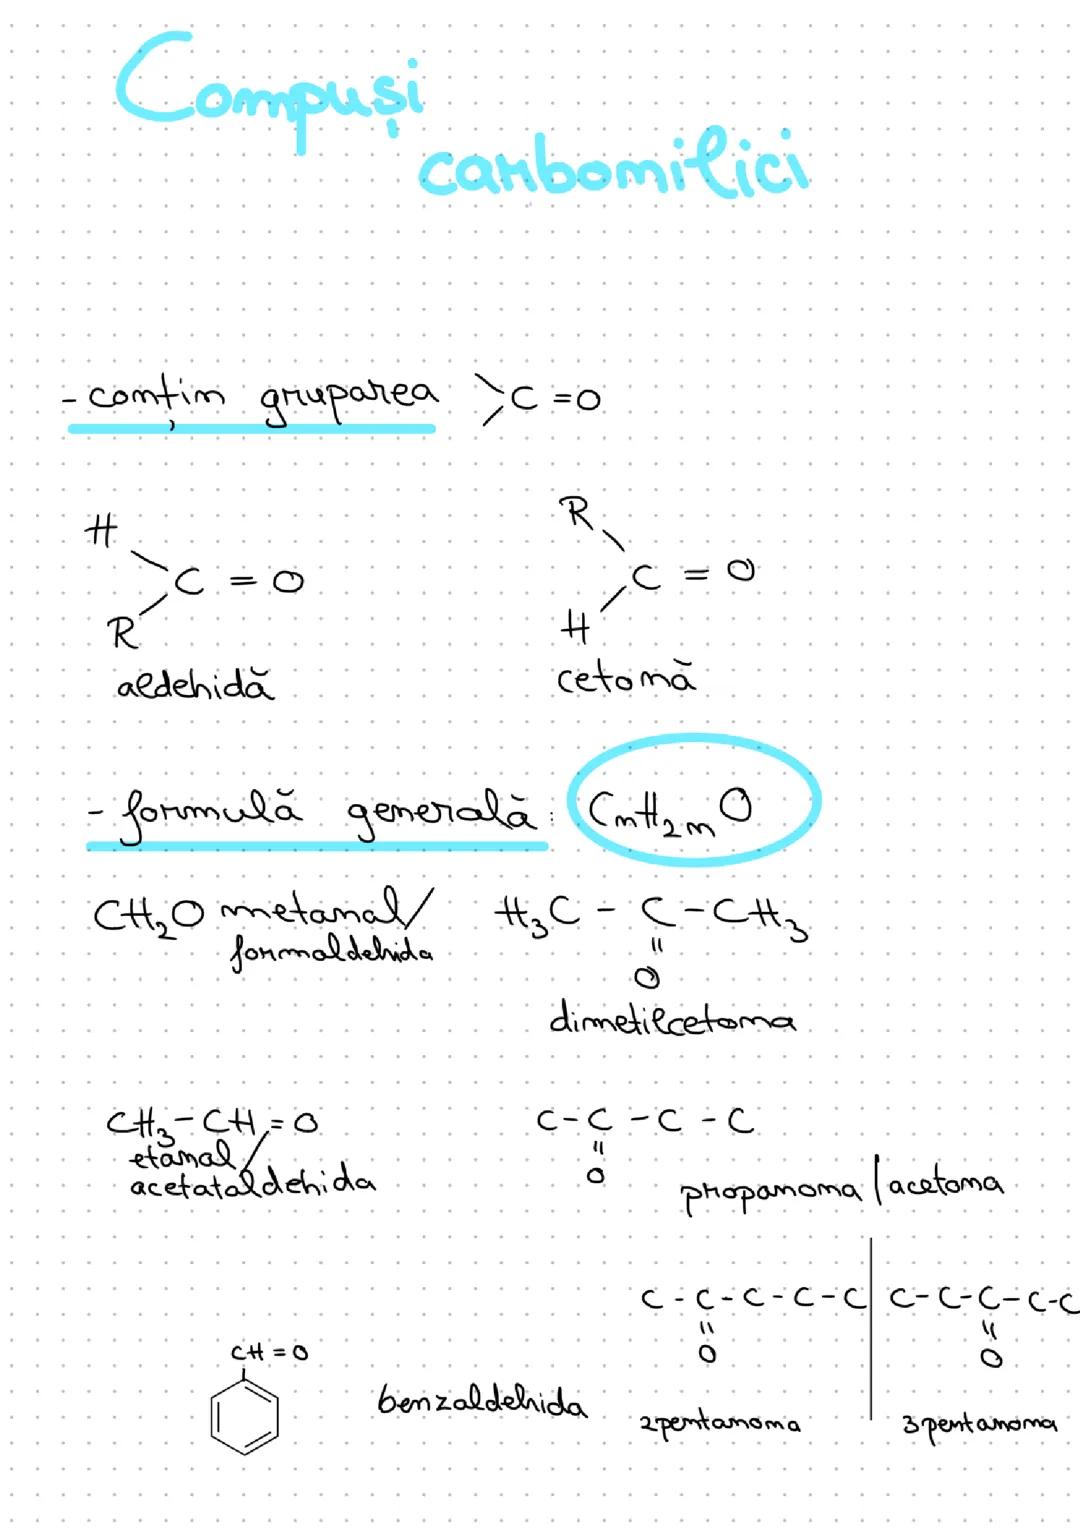 Compuși
carbonilici
- conțin gruparea >C=O
H
R
C = O
aldehidă
R
H
C = O
cetonă
- formulă generală: CnH2nO
CH2O metanal/
formaldehida
H3C - C - CH3
=
O
dimetilcetona
CH3 - CH = O
etanal/
acetataldehida
C - C - C - C
=
O
propanona / acetona
C - C - C - C - C
=
O
2pentanona
C - C - C - C - C
=
O
3pentanona
CH = O
benzaldehida